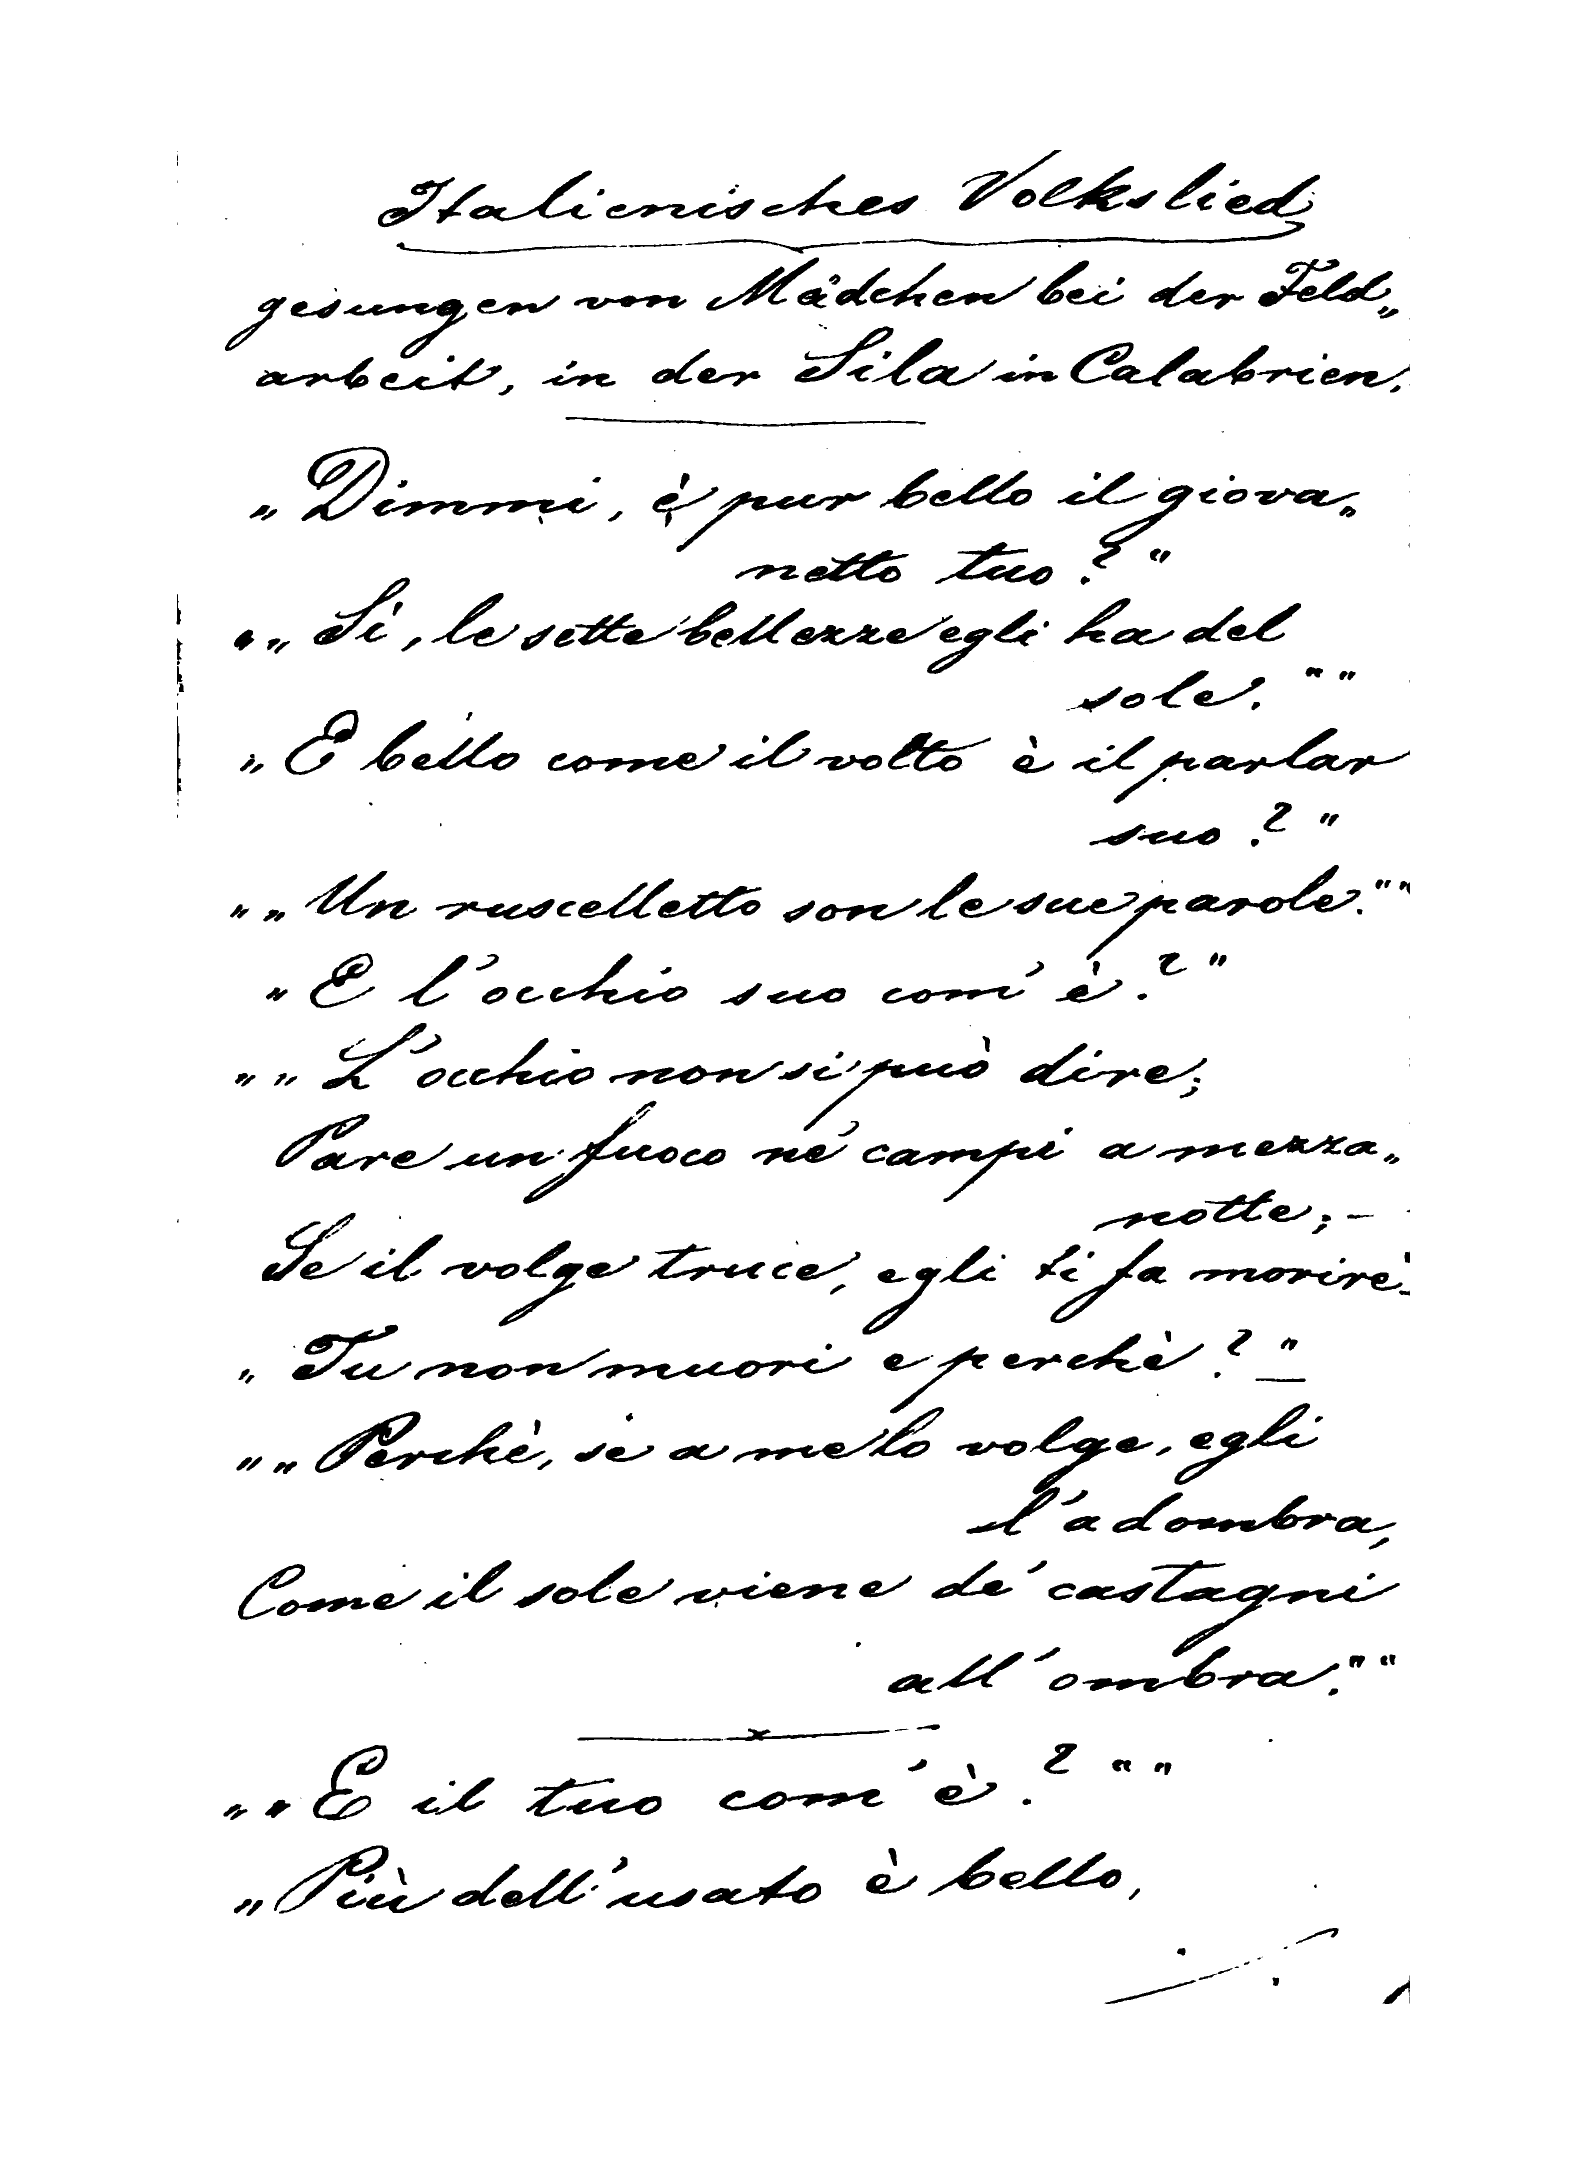 Italienisches Volkslied
gesungen von Mädchen bei der Feld„
arbeit, in der Sila in Calabrien.
„Dimmi, è pur bello il giova„
netto tuo?"
„„Sì, le sette bellezze egli ha del
sole.""
„E bello come il volto è il parlar
suo?"
„„Un ruscelletto son le sue parole.""
„E l'occhio suo com' è?"
„„L'occhio non si può dire;
Pare un fuoco ne' campi a mezza„
notte; –
Se il volge truce, egli ti fa morirè.
„Tu non muori e perchè?"
„„Perchè, se a me lo volge, egli
l'adombra,
Come il sole viene de' castagni
all' ombra.""
„„E il tuo com' è?""
„Più dell' usato è bello,